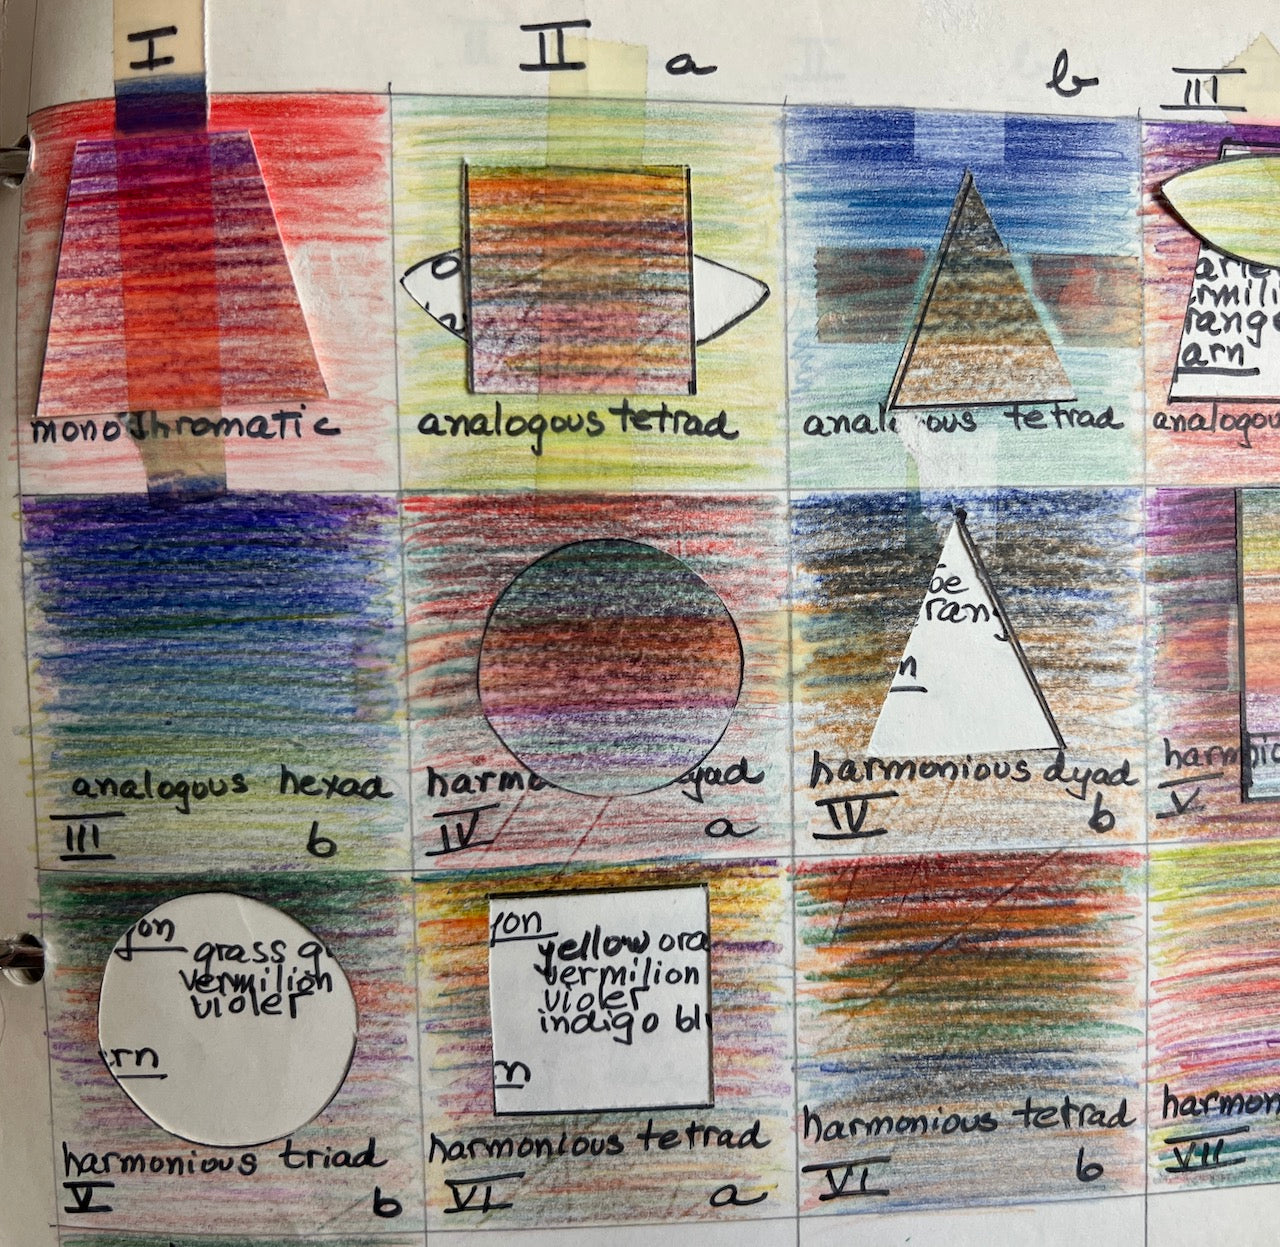 I
II a
b
III
monochromatic
analogous tetrad
o
analogous tetrad
rmili
range
arn
analogou
analogous hexad
III b
harmo yad
IV a
be
rang
n
harmonious dyad
IV b
harmonic
V
on
grass g
vermilion
violet
rn
harmonious triad
V b
on
yellow ora
vermilion
violet
indigo bl
n
harmonious tetrad
VI a
harmonious tetrad
VI b
harmon
VII